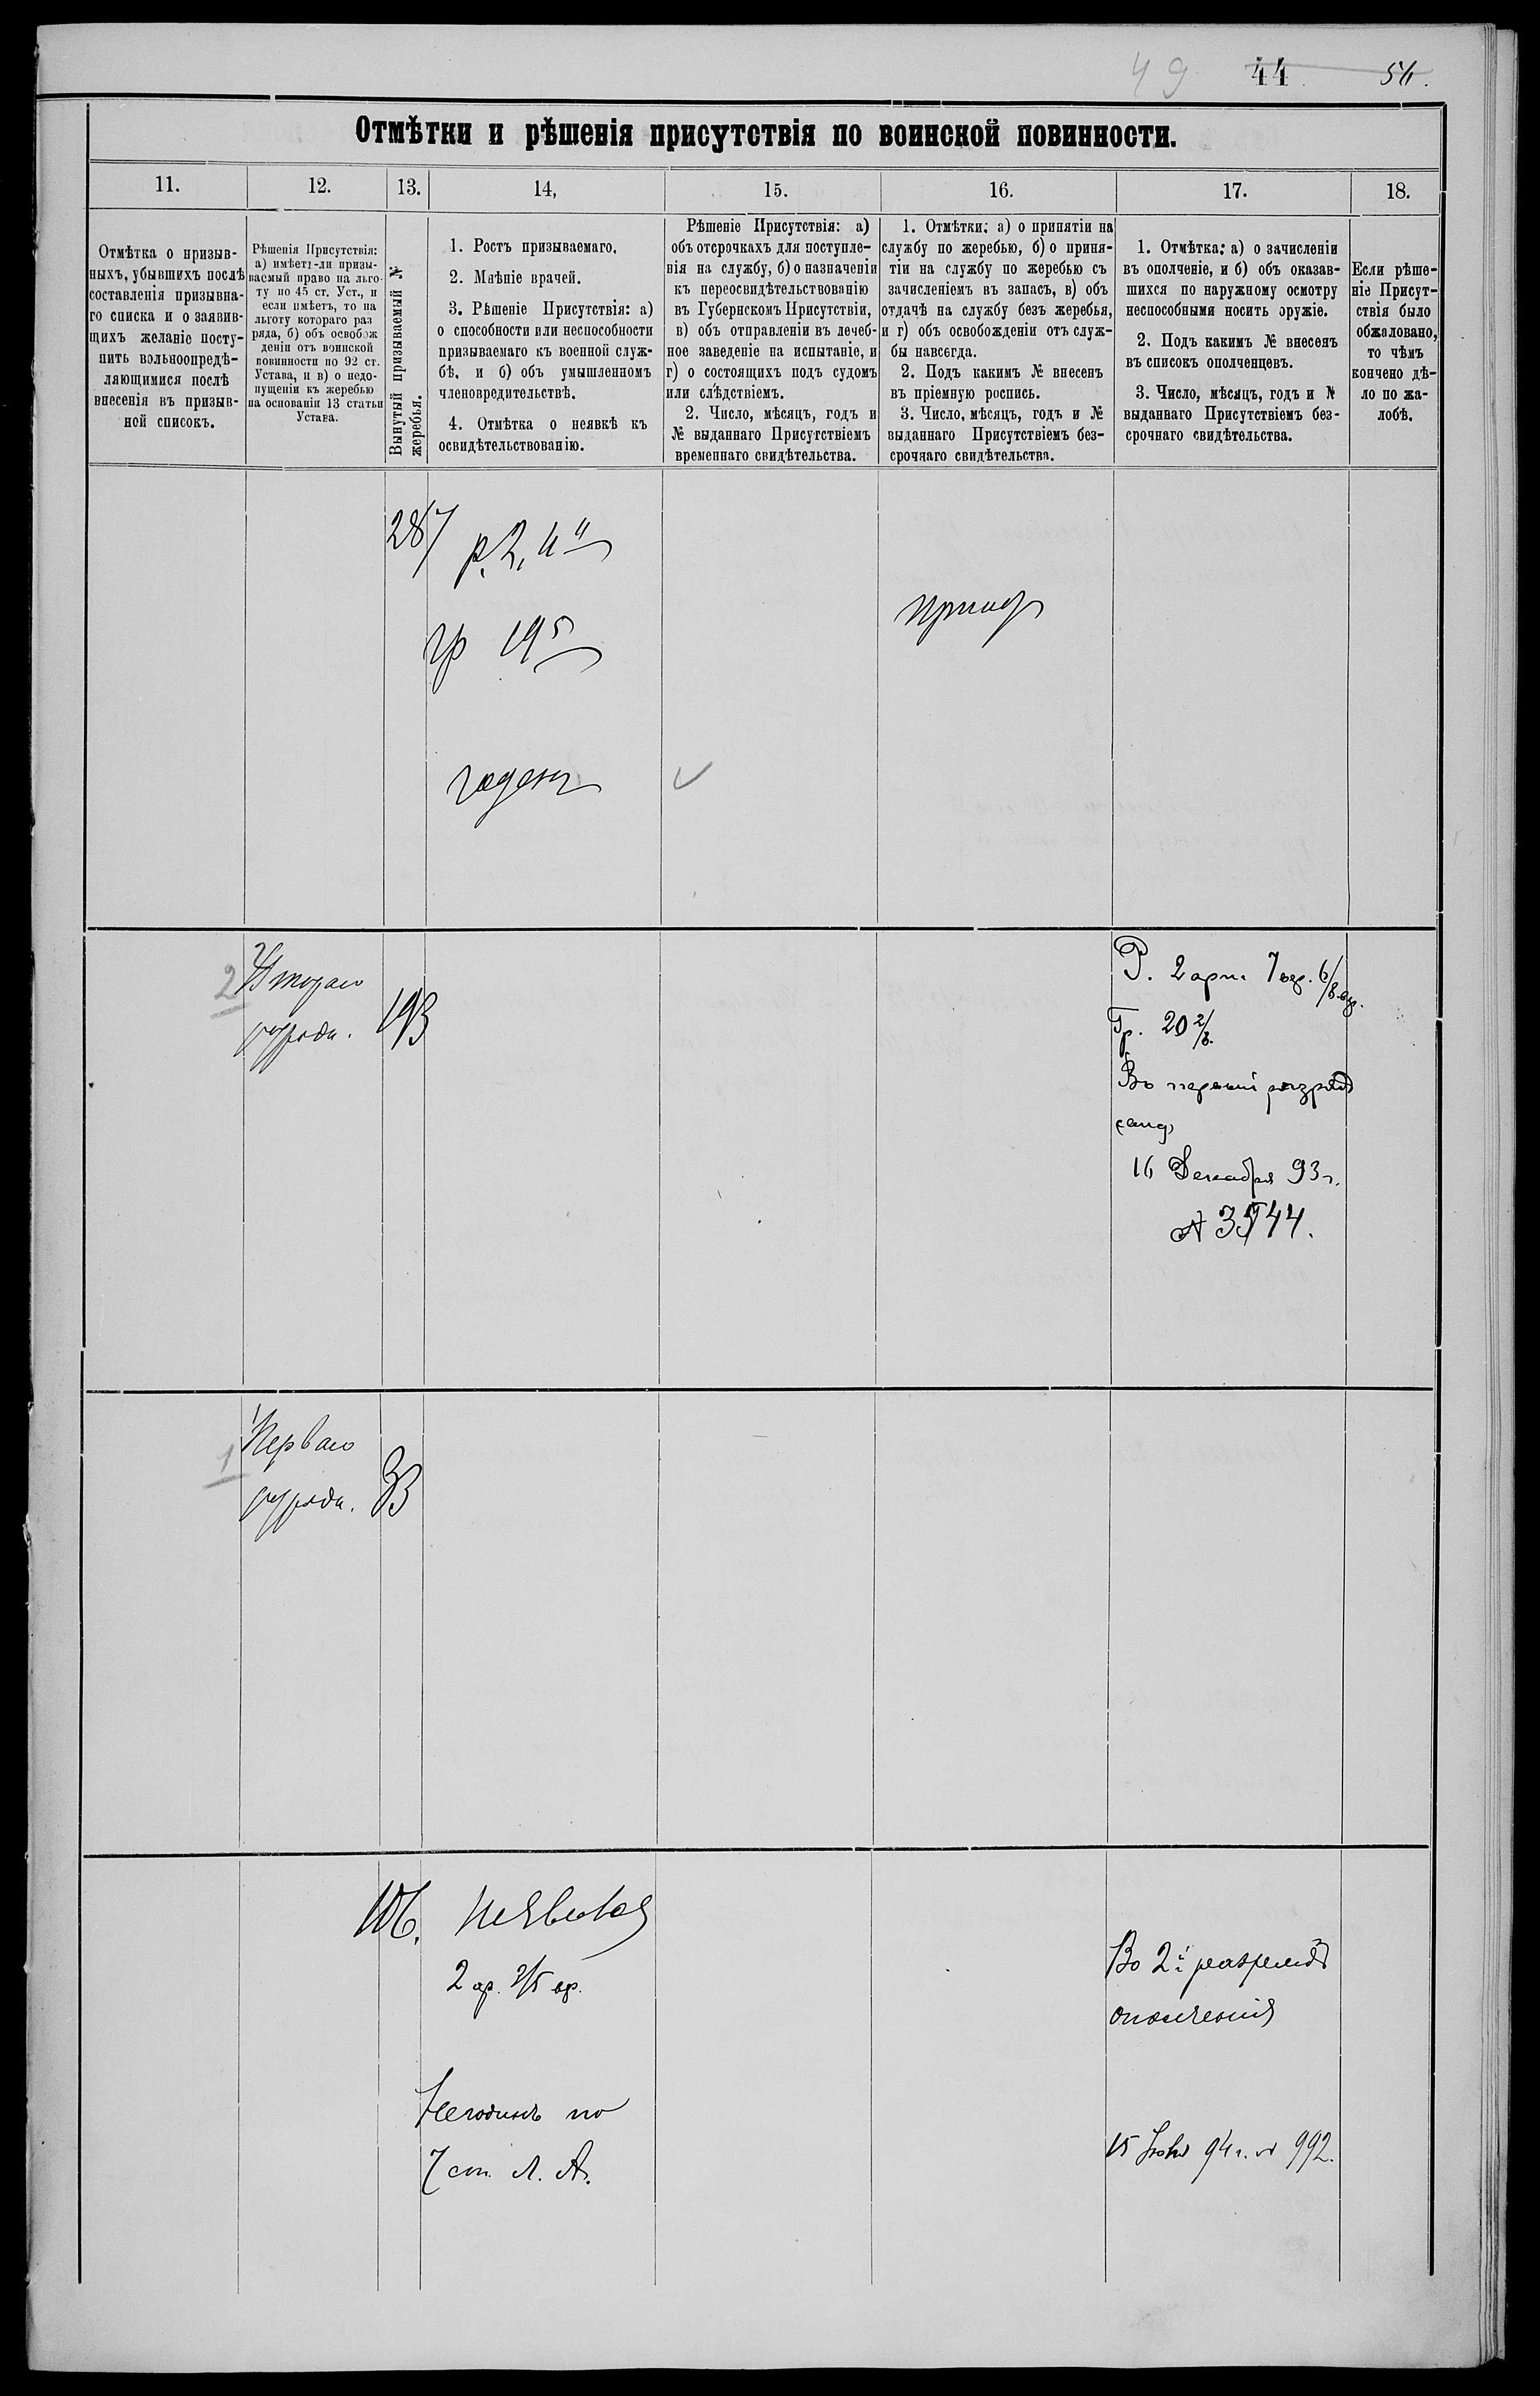 49 44 56.
Отмѣтки и рѣшенія присутствія по воинской повинности.
11. 12. 13. 14, 15. 16. 17. 18.
Отмѣтка о призыв-
ныхъ, убывшихъ послѣ
составленія призывна-
го списка и о заявив-
щихъ желаніе посту-
пить вольноопредѣ-
ляющимися послѣ
внесенія въ призыв-
ной списокъ.
Рѣшенія Присутствія:
а) имѣетъ-ли призы-
ваемый право на льго-
ту по 45 ст. Уст., и
если имѣетъ, то на
льготу котораго раз
ряда, б) объ освобож
деніи отъ воинской
повинности по 92 ст.
Устава, и в) о недо-
пущеніи къ жеребью
на основаніи 13 статьи
Устава.
Вынутый призываемый №
жеребья.
1. Ростъ призываемаго.
2. Мнѣніе врачей.
3. Рѣшеніе Присутствія: а)
о способности или неспособности
призываемаго къ военной служ-
бѣ, и б) объ умышленномъ
членовредительствѣ.
4. Отмѣтка о неявкѣ къ
освидѣтельствованію.
Рѣшеніе Присутствія: а)
объ отсрочкахъ для поступле-
нія на службу, б) о назначеніи
къ переосвидѣтельствованію
въ Губернскомъ Присутствіи,
в) объ отправленіи въ лечеб-
ное заведеніе на испытаніе, и
г) о состоящихъ подъ судомъ
или слѣдствіемъ.
2. Число, мѣсяцъ, годъ и
№ выданнаго Присутствіемъ
временнаго свидѣтельства.
1. Отмѣтки: а) о принятіи на
службу по жеребью, б) о приня-
тіи на службу по жеребью съ
зачисленіемъ въ запасъ, в) объ
отдачѣ на службу безъ жеребья,
и г) объ освобожденіи отъ служ-
бы навсегда.
2. Подъ какимъ № внесенъ
въ пріемную роспись.
3. Число, мѣсяцъ, годъ и №
выданнаго Присутствіемъ без-
срочнаго свидѣтельства.
1. Отмѣтка: а) о зачисленіи
въ ополченіе, и б) объ оказав-
шихся по наружному осмотру
неспособными носить оружіе.
2. Подъ какимъ № внесенъ
въ списокъ ополченцевъ.
3. Число, мѣсяцъ, годъ и №
выданнаго Присутствіемъ без-
срочнаго свидѣтельства.
Если рѣше-
ніе Присут-
ствія было
обжаловано,
то чѣмъ
кончено дѣ-
ло по жа-
лобѣ.
287
р. 2, 4
гр 19 5
годенъ
принят
2
Втораго
разряда.
193
Р. 2 арш. 7 вер. 6/8 вер.
Гр. 20 2/8.
Въ первый разрядъ
16 Декабря 93 г.
№ 3544.
1
Перваго
разряда.
33
106.
неявился
2 ар. 2/5 вер.
Негоденъ по
7 ст. Л. А.
Во 2й разрядъ
ополченія
15 94 г. № 992.